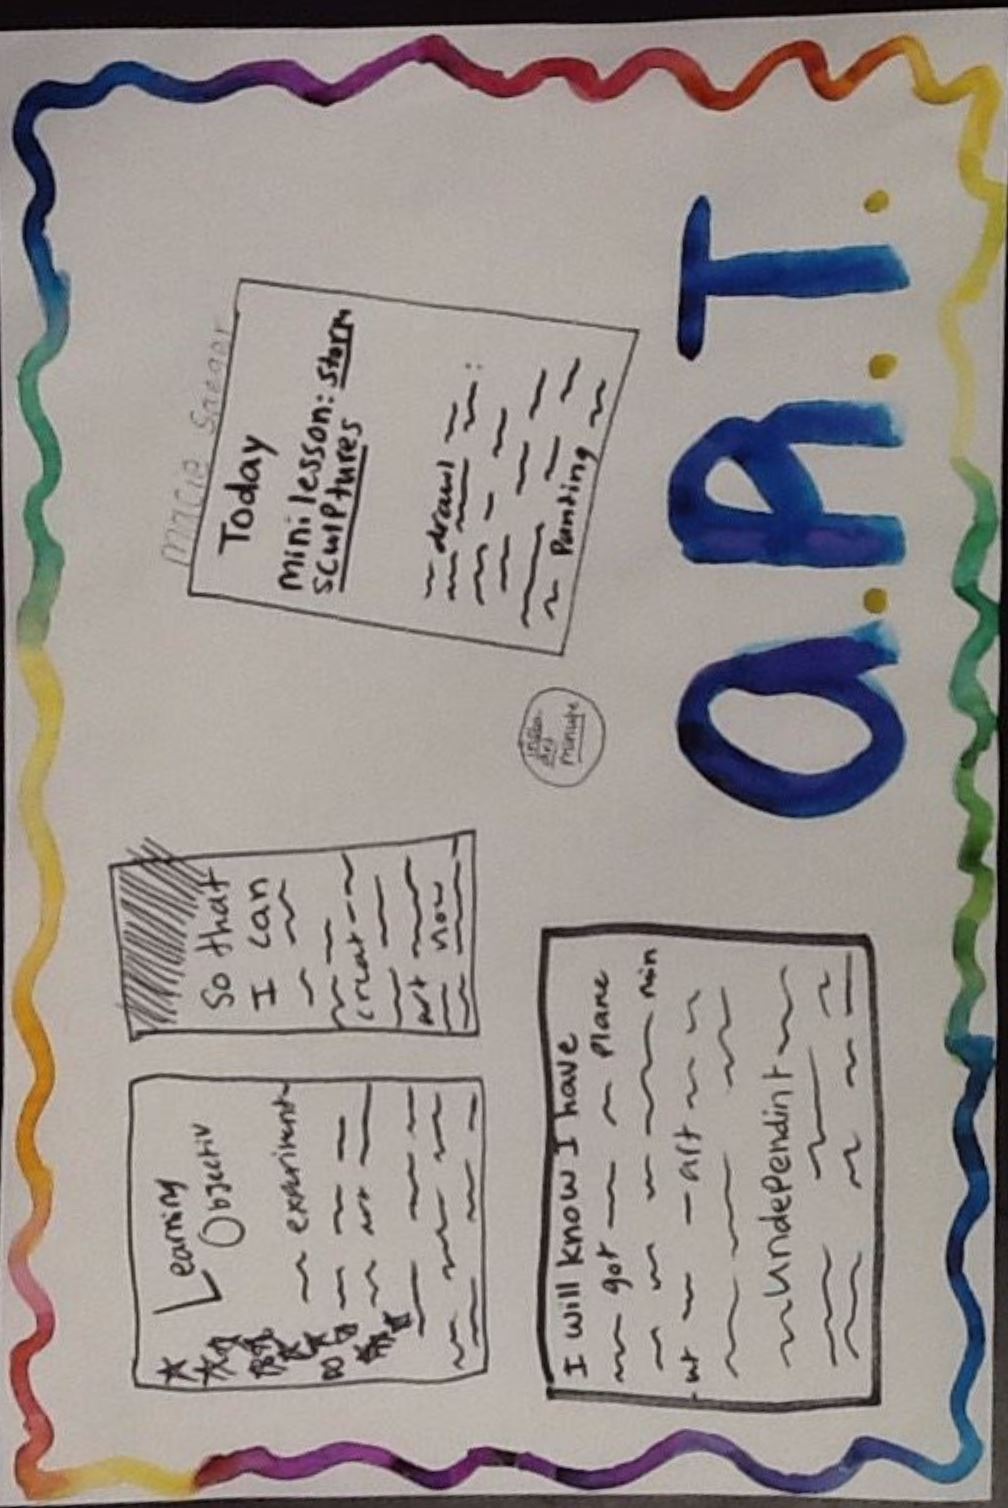 Learning
Objectiv
experiment
art
So that
I can
creat
art
now
Today
mini lesson: storm
sculptures
draw
Panting
I will know I have
got
Plane
min
art
undependint
minute
a.R.T.